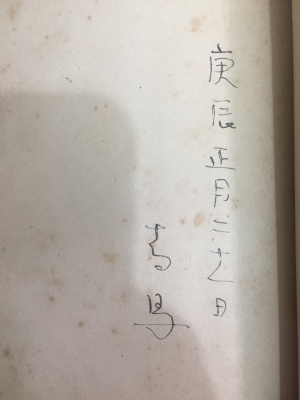 庚辰正月二十七日